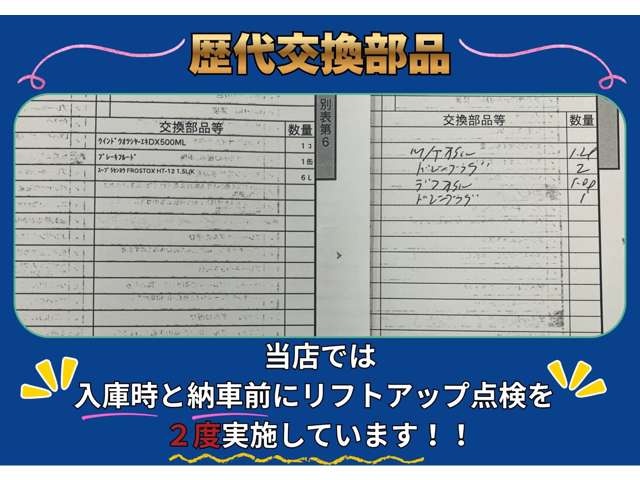 歴代交換部品
交換部品等 数量
別表第6
ウインドウオツシヤーエキDX500ML 1コ
ブレーキフルード 1缶
FROSTOX HT-12 1.5L/K 6L
交換部品等 数量
M/Tオイル 1.2l
ドレンプラグ 2
デフオイル 1.0l
ドレンプラグ 1
当店では
入庫時と納車前にリフトアップ点検を
2度実施しています！！